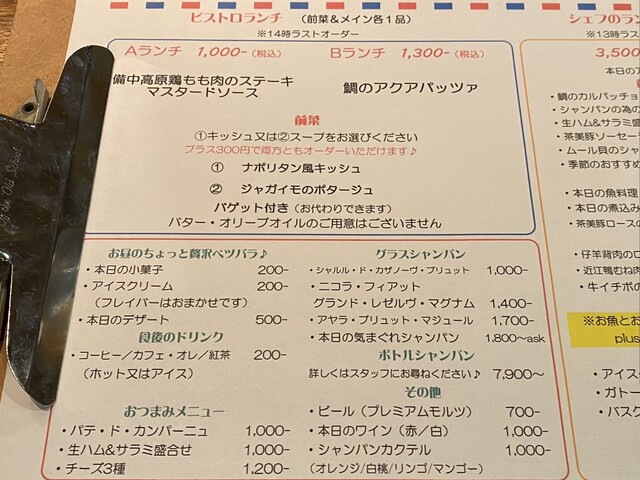 ビストロランチ （前菜＆メイン各１品）
※14時ラストオーダー
Aランチ 1,000-（税込）
備中高原鶏もも肉のステーキ
マスタードソース
Bランチ 1,300-（税込）
鯛のアクアパッツァ
前菜
①キッシュ又は②スープをお選びください
プラス300円で両方ともオーダーいただけます♪
① ナポリタン風キッシュ
② ジャガイモのポタージュ
バゲット付き（お代わりできます）
バター・オリーブオイルのご用意はございません
お昼のちょっと贅沢ベツバラ♪
・本日の小菓子 200-
・アイスクリーム 200-
（フレイバーはおまかせです）
・本日のデザート 500-
食後のドリンク
・コーヒー／カフェ・オレ／紅茶 200-
（ホット又はアイス）
おつまみメニュー
・パテ・ド・カンパーニュ 1,000-
・生ハム&サラミ盛合せ 1,000-
・チーズ3種 1,200-
グラスシャンパン
・シャルル・ド・カザノーヴ・ブリュット 1,000-
・ニコラ・フィアット
グランド・レゼルヴ・マグナム 1,400-
・アヤラ・ブリュット・マジュール 1,700-
・本日の気まぐれシャンパン 1,800～ask
ボトルシャンパン
詳しくはスタッフにお尋ねください♪ 7,900～
その他
・ビール（プレミアムモルツ） 700-
・本日のワイン（赤／白） 1,000-
・シャンパンカクテル 1,000-
（オレンジ/白桃/リンゴ/マンゴー）
シェフのラン
※13時ラス
3,500
本日のア
・鯛のカルパッチョ
・シャンパンの為の
・生ハム&サラミ盛
・茶美豚ソーセー
・ムール貝のシャ
・季節のおすすめ
・本日の魚料理
・本日の煮込み
・茶美豚ロースの
・仔羊背肉のロ
・近江鴨むね肉
・キイチポの
※お魚とお
plus
・アイス
・ガトー
・バスク